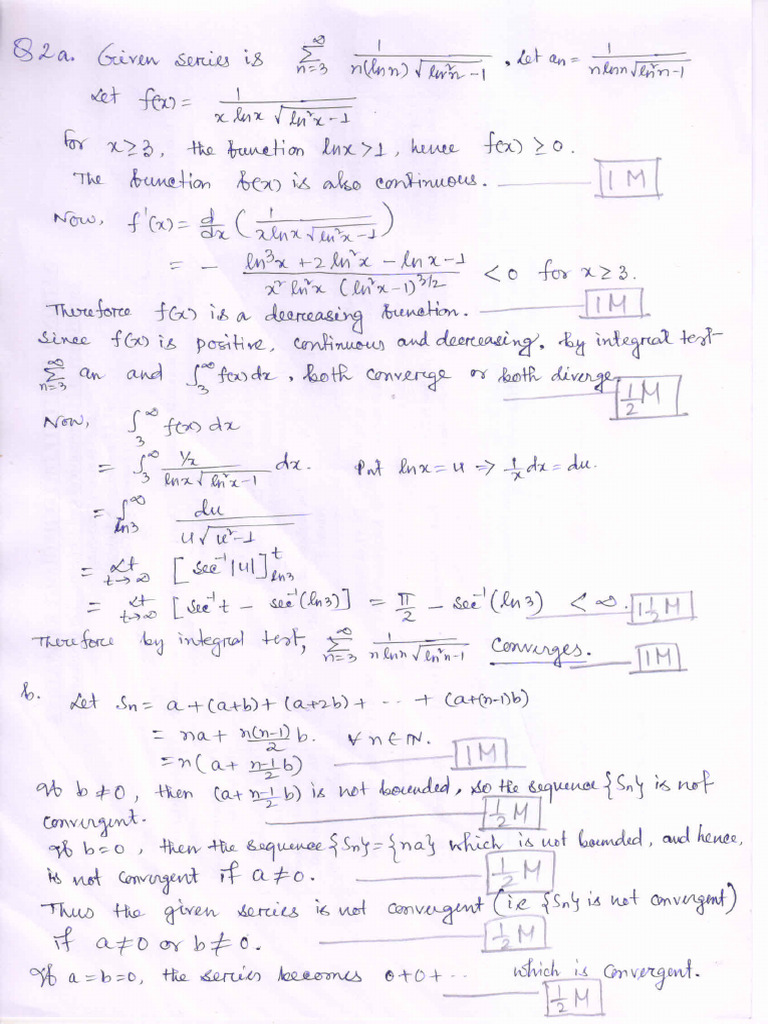 Q2a. Given series is ∑_{n=3}^{∞} 1/(n(ln n)√(ln²n-1)), Let an = 1/(n lnn √(ln²n-1))
Let f(x) = 1/(x lnx √(ln²x-1))
For x≥3, the function lnx>1, hence f(x) ≥ 0.
The function f(x) is also continuous. 1M
Now, f'(x) = d/dx (1/(xlnx √(ln²x-1)))
= - (ln³x + 2ln²x - lnx - 1)/(x² ln²x (ln²x-1)^{3/2}) < 0 for x≥3.
Therefore f(x) is a decreasing function. 1M
Since f(x) is positive, continuous and decreasing, by integral test
∑_{n=3}^{∞} an and ∫_3^∞ f(x)dx, both converge or both diverge. ½M
Now, ∫_3^∞ f(x) dx
= ∫_3^∞ (1/x)/(lnx √(ln²x-1)) dx. Put lnx = u => 1/x dx = du.
= ∫_{ln3}^∞ du/(u√(u²-1))
= Lt_{t→∞} [sec⁻¹|u|]_{ln3}^t
= Lt_{t→∞} [sec⁻¹t - sec⁻¹(ln3)] = π/2 - sec⁻¹(ln3) < ∞. 1½M
Therefore by integral test, ∑_{n=3}^{∞} 1/(n lnn √(ln²n-1)) Converges. 1M
b. Let Sn = a+(a+b)+(a+2b)+ ... + (a+(n-1)b)
= na + n(n-1)/2 b. ∀ n∈ℕ.
= n(a + (n-1)/2 b) 1M
If b≠0, then (a+ (n-1)/2 b) is not bounded, so the sequence {Sn} is not
convergent. ½M
If b=0, then the sequence {Sn}={na} which is not bounded, and hence,
is not convergent if a≠0. ½M
Thus the given series is not convergent (i.e {Sn} is not convergent)
if a≠0 or b≠0. ½M
If a=b=0, the series becomes 0+0+... which is convergent.
½M